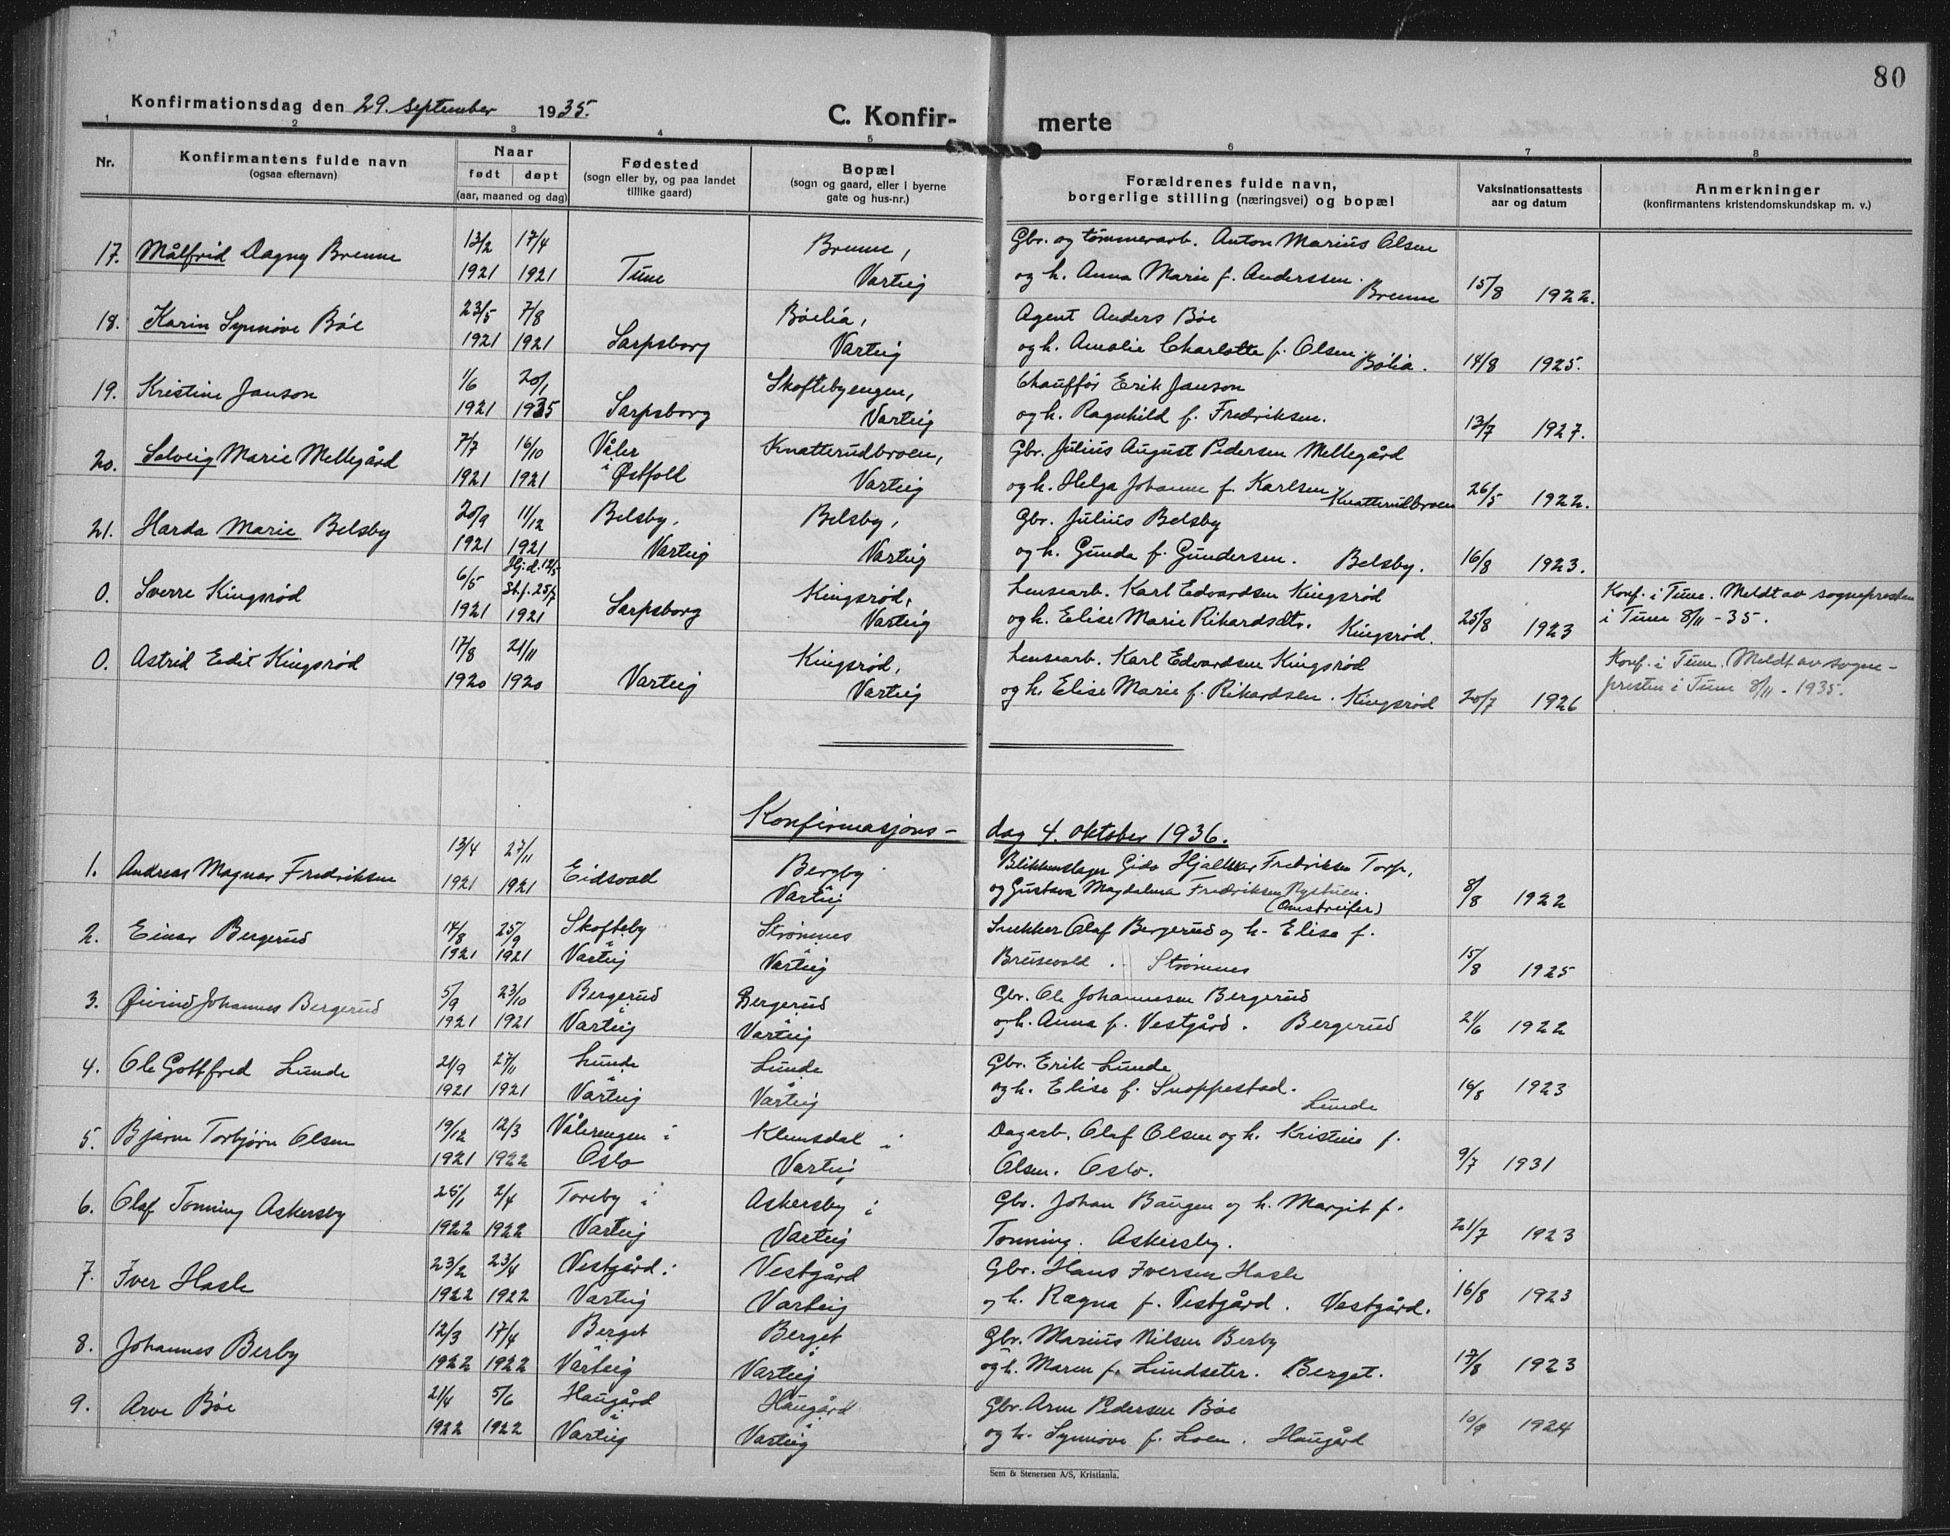 80
Konfirmationsdag den 29. september 1935.
C. Konfir- merte
1 2 3 4 5 6 7 8
Nr.
Konfirmantens fulde navn
(ogsaa efternavn)
Naar
født døpt
(aar, maaned og dag)
Fødested
(sogn eller by, og paa landet
tillike gaard)
Bopæl
(sogn og gaard, eller i byerne
gate og hus-nr.)
Forældrenes fulde navn,
borgerlige stilling (næringsvei) og bopæl
Vaksinationsattests
aar og datum
Anmerkninger
(konfirmantens kristendomskundskap m. v.)
17. Målfrid Dagny Brenne 13/2 17/4 Brenne, Gbr. og tømmerarb. Anton Marius Olsen
1921 1921 Tune Varteig og h. Anna Marie f. Anderssen. Brenne 15/8 1922.
18. Karin Synnøve Bøe 23/5 7/8 Bøelia, Agent Anders Bøe
1921 1921 Sarpsborg Varteig og h. Amalie Charlotte f. Olsen. Bølia. 14/8 1925.
19. Kristine Janson 1/6 20/1 Skoftebyengen, Chauffør Erik Janson
1921 1935 Sarpsborg Varteig og h. Ragnhild f. Fredriksen. 13/7 1927.
20. Solveig Marie Mellegård 7/7 16/10 Våler Knatterudbroen, Gbr. Julius August Pedersen Mellegård
1921 1921 i Østfold Varteig og h. Helga Johanne f. Karlsen Knatterudbroen 26/5 1922.
21. Harda Marie Belsby 20/9 11/12 Belsby, Belsby, Gbr. Julius Belsby
1921 1921 Varteig Varteig og h. Gunda f. Gundersen. Belsby. 16/8 1923.
0. Sverre Kingsrød 6/5 Hj.d. 12/5 Stf. 25/7 Kingsrød, Lensearb. Karl Edvardsen Kingsrød Konf. i Tune. Meldt av sognepresten
1921 1921 Sarpsborg Varteig og h. Elise Marie Rikardsdtr. Kingsrød. 25/8 1923 i Tune 8/11 - 35.
0. Astrid Edit Kingsrød 17/8 21/11 Kingsrød, Lensearb. Karl Edvardsen Kingsrød Konf. i Tune. Meldt av sogne-
1920 1920 Varteig Varteig og h. Elise Marie f. Rikardsen. Kingsrød 20/7 1926 presten i Tune 8/11 - 1935.
Konfirmasjons- dag 4. oktober 1936.
1. Andreas Magnar Fredriksen 13/4 27/11 Eidsvold Bergby Blikkenslager Hjalmar Fredriksen Torp,
1921 1921 Varteig og Gustava Magdalena Fredriksen Nystuen. (Omstreifer) 8/8 1922
2. Einar Bergerud 14/8 25/9 Skofteby Strømnes Snekker Olaf Bergerud og h. Elise f.
1921 1921 Varteig Varteig Brusevold. Strømnes 15/8 1925
3. Øivind Johannes Bergerud 5/9 23/10 Bergerud Bergerud Gbr. Ole Johannesen Bergerud
1921 1921 Varteig Varteig og h. Anna f. Vestgård. Bergerud 21/6 1922
4. Ole Gottfred Lunde 21/9 27/11 Lunde Lunde Gbr. Erik Lunde
1921 1921 Varteig Varteig og h. Elise f. Snoppestad. Lunde 16/8 1923
5. Bjarne Torbjørn Olsen 19/12 12/3 Vålerengen i Klemsdal i Dagarb. Olaf Olsen og h. Kristine f.
1921 1922 Oslo Varteig Olsen. Oslo. 9/7 1931
6. Olaf Tonning Askersby 25/1 2/4 Toreby i Askersby i Gbr. Johan Baugen og h. Margit f.
1922 1922 Varteig Varteig Tonning. Askersby. 21/7 1923
7. Iver Hasle 23/2 23/4 Vestgård i Vestgård Gbr. Hans Iversen Hasle
1922 1922 Varteig Varteig og h. Ragna f. Vestgård. Vestgård. 16/8 1923
8. Johannes Berby 12/3 17/4 Berget Berget Gbr. Marius Nilsen Berby
1922 1922 Varteig Varteig og h. Maren f. Lundseter. Berget. 17/8 1923
9. Arve Bøe 21/4 5/6 Haugård Haugård Gbr. Arne Pedersen Bøe
1922 1922 Varteig Varteig og h. Synnøve f. Loen. Haugård 10/9 1924
Sem & Stenersen A/S, Kristiania.